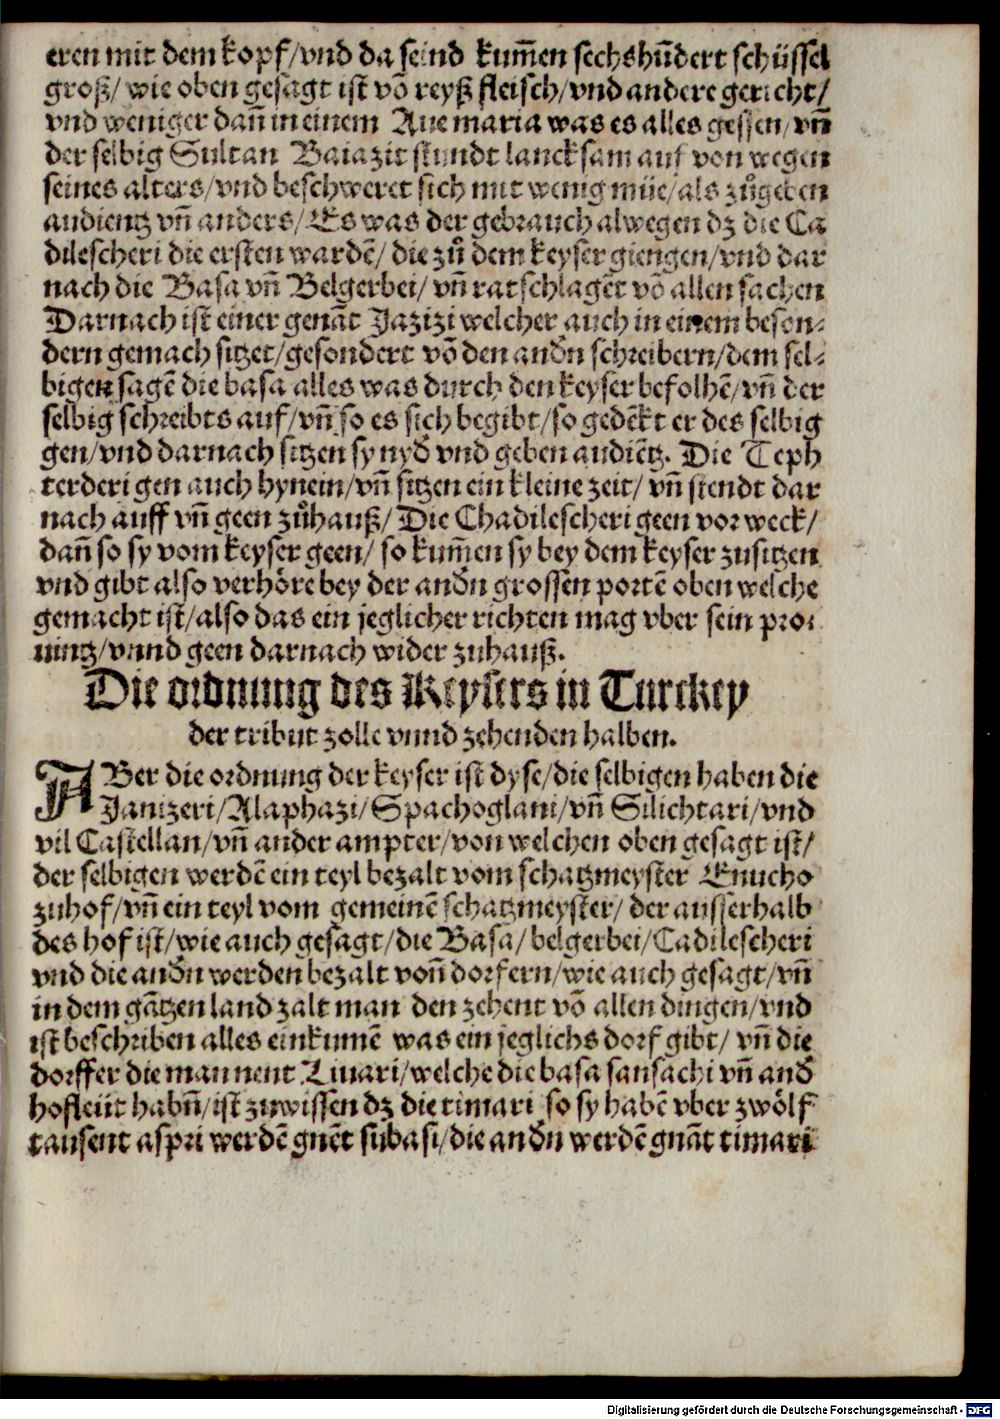 eren mit dem kopf/vnd da seind kum̃en sechshũdert schüssel
groß/ wie oben gesagt ist võ reyß fleisch/vnd andere gericht/
vnd weniger dañ in einem Aue maria was es alles gessen/vñ
der selbig Sultan Baiazit stundt lancksam auf von wegen
seines alters/vnd beschweret sich mit wenig müe/als zůgeben
audientz vñ anders/Es was der gebrauch alwegen dz die Ca
dilescheri die ersten wardẽ/ die zů dem keyser giengen/vnd dar
nach die Basa vñ Belgerbei/ vñ ratschlagẽt võ allen sachen
Darnach ist einer genãt Jazizi welcher auch in einem beson⸗
dern gemach sitzet/gesondert võ den andn̄ schreibern/dem sel⸗
bigen sagẽ die basa alles was durch den keyser befolhẽ/vñ der
selbig schreibts auf/vñ so es sich begibt/so gedẽkt er des selbig
gen/vnd darnach sitzen sy nyd̄ vnd geben audiẽtz. Die Teph
terderi gen auch hynein/vñ sitzen ein kleine zeit/ vñ stendt dar
nach auff vñ geen zůhauß/Die Chadilescheri geen vor weck/
dañ so sy vom keyser geen/ so kum̃en sy bey dem keyser zusitzen
vnd gibt also verhöre bey der andn̄ grossen portẽ oben welche
gemacht ist/also das ein jeglicher richten mag vber sein pro⸗
uintz/vnnd geen darnach wider zuhauß.
Die ordnung des Keysers in Turckey
der tribut zolle vnnd zehenden halben.
ABer die ordnung der keyser ist dyse/die selbigen haben die
Janizeri/Alaphazi/Spachoglani/vñ Silichtari/vnd
vil Castellan/vñ ander ampter/von welchen oben gesagt ist/
der selbigen werdẽ ein teyl bezalt vom schatzmeyster Enucho
zuhof/vñ ein teyl vom gemeinẽ schatzmeyster/ der ausserhalb
des hof ist/wie auch gesagt/die Basa/belgerbei/Cadilescheri
vnd die andn̄ werden bezalt voñ dorfern/wie auch gesagt/vñ
in dem gãtzen land zalt man den zehent võ allen dingen/vnd
ist beschriben alles einkumẽ was ein jeglichs dorf gibt/ vñ die
dorffer die man nent Timari/welche die basa sansachi vñ and̄
hofleüt habñ/ist zuwissen dz die timari so sy habẽ vber zwölf
tausent aspri werdẽ gnẽt subasi/die andn̄ werdẽ gnãt timari
Digitalisierung gefördert durch die Deutsche Forschungsgemeinschaft - DFG